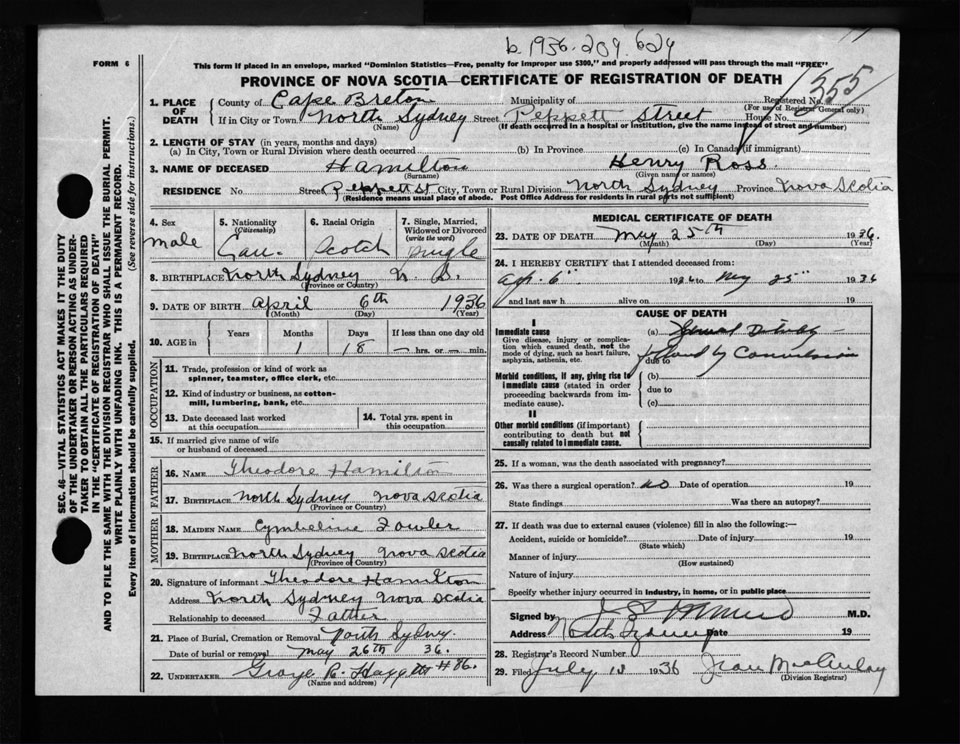 b. 1936-209-624
FORM 6
This form if placed in an envelope, marked "Dominion Statistics—Free, penalty for improper use $300," and properly addressed will pass through the mail "FREE"
PROVINCE OF NOVA SCOTIA—CERTIFICATE OF REGISTRATION OF DEATH
1. PLACE OF DEATH { County of Cape Breton Municipality of Registered No. 355
(For use of Registrar General only)
If in City or Town North Sydney Street Peppett Street House No.
(Name) (If death occurred in a hospital or institution, give the name instead of street and number)
2. LENGTH OF STAY (in years, months and days)
(a) In City, Town or Rural Division where death occurred (b) In Province (c) In Canada (if immigrant)
3. NAME OF DECEASED Hamilton Henry Ross.
(Surname) (Given name or names)
RESIDENCE No. Street Peppett St City, Town or Rural Division North Sydney Province Nova Scotia
(Residence means usual place of abode. Post Office Address for residents in rural parts not sufficient)
4. Sex
male
5. Nationality
(Citizenship)
Can.
6. Racial Origin
Scotch
7. Single, Married, Widowed or Divorced
(write the word)
Single
8. BIRTHPLACE North Sydney N. S.
(Province or Country)
9. DATE OF BIRTH April 6th 1936
(Month) (Day) (Year)
10. AGE in { Years Months Days If less than one day old
1 18 — hrs. or — min.
OCCUPATION
11. Trade, profession or kind of work as spinner, teamster, office clerk, etc.
12. Kind of industry or business, as cotton-mill, lumbering, bank, etc.
13. Date deceased last worked at this occupation
14. Total yrs. spent in this occupation
15. If married give name of wife or husband of deceased
FATHER
16. NAME Theodore Hamilton
17. BIRTHPLACE North Sydney Nova Scotia
(Province or Country)
MOTHER
18. MAIDEN NAME Cymbeline Fowler
19. BIRTHPLACE North Sydney Nova Scotia
(Province or Country)
20. Signature of informant Theodore Hamilton
Address North Sydney Nova Scotia
Relationship to deceased Father
21. Place of Burial, Cremation or Removal North Sydney.
Date of burial or removal May 26th 36.
22. UNDERTAKER R. #86.
(Name and address)
MEDICAL CERTIFICATE OF DEATH
23. DATE OF DEATH May 25th 1936.
(Month) (Day) (Year)
24. I HEREBY CERTIFY that I attended deceased from:
Ap. 6" 1936 to May 25" 1936
and last saw h alive on 19
CAUSE OF DEATH
I
Immediate cause
Give disease, injury or complication which caused death, not the mode of dying, such as heart failure, asphyxia, asthenia, etc.
(a) General Debility
due to followed by Convulsions
Morbid conditions, if any, giving rise to immediate cause (stated in order proceeding backwards from immediate cause).
(b)
due to
(c)
II
Other morbid conditions (if important) contributing to death but not causally related to immediate cause.
25. If a woman, was the death associated with pregnancy?
26. Was there a surgical operation? no Date of operation 19
State findings Was there an autopsy?
27. If death was due to external causes (violence) fill in also the following:—
Accident, suicide or homicide? Date of injury 19
(State which)
Manner of injury
(How sustained)
Nature of injury
Specify whether injury occurred in industry, in home, or in public place
Signed by M.D.
Address North Sydney Date 19
28. Registrar's Record Number
29. Filed July 13 1936 Jean MacAulay
(Division Registrar)
SEC. 46—VITAL STATISTICS ACT MAKES IT THE DUTY
OF THE UNDERTAKER OR PERSON ACTING AS UNDER-
TAKER TO OBTAIN ALL THE PARTICULARS REQUIRED
IN THE "CERTIFICATE OF REGISTRATION OF DEATH"
AND TO FILE THE SAME WITH THE DIVISION REGISTRAR WHO SHALL ISSUE THE BURIAL PERMIT.
WRITE PLAINLY WITH UNFADING INK. THIS IS A PERMANENT RECORD.
Every item of information should be carefully supplied. (See reverse side for instructions.)